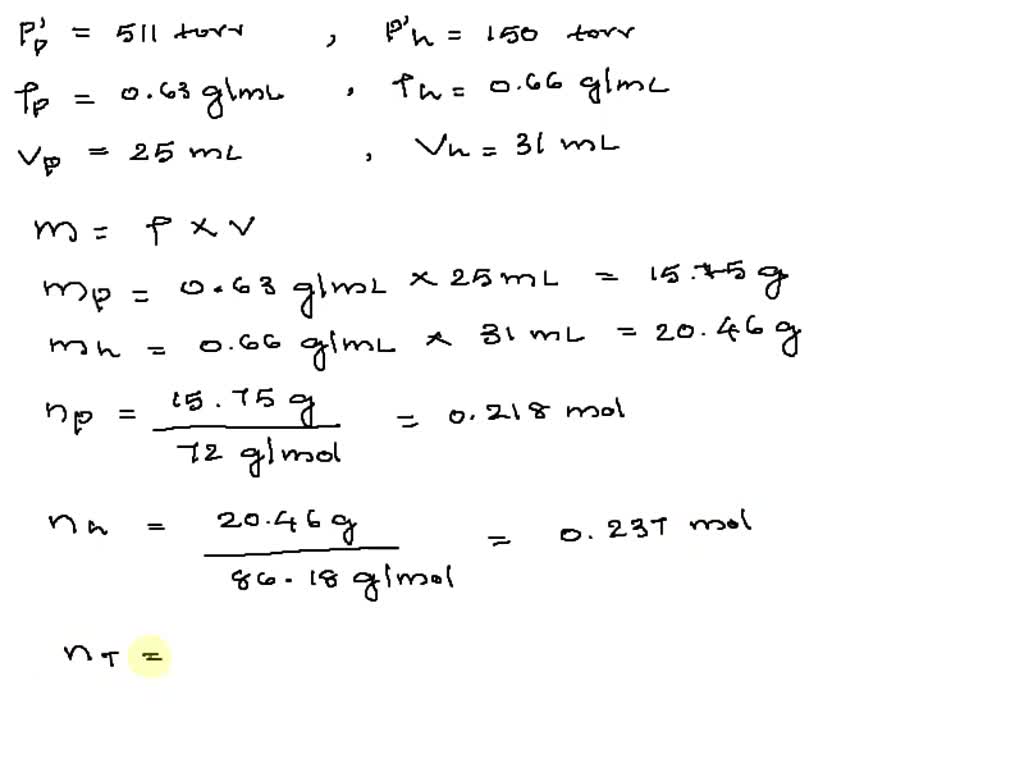 P'p = 511 torr , P'h = 150 torr
ρp = 0.63 g/mL , ρh = 0.66 g/mL
Vp = 25 mL , Vh = 31 mL
m = ρ × V
mp = 0.63 g/mL × 25 mL = 15.75 g
mh = 0.66 g/mL × 31 mL = 20.46 g
np = 15.75 g / 72 g/mol = 0.218 mol
nh = 20.46 g / 86.18 g/mol = 0.237 mol
nT =